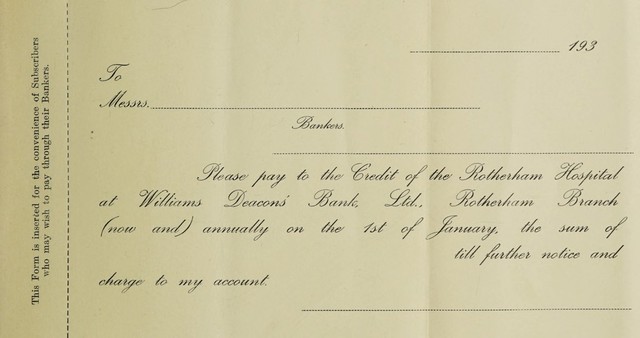 This Form is inserted for the convenience of Subscribers
who may wish to pay through their Bankers.
193
To
Messrs.
Bankers.
Please pay to the Credit of the Rotherham Hospital
at Williams Deacons' Bank, Ltd., Rotherham Branch
(now and) annually on the 1st of January, the sum of
till further notice and
charge to my account.